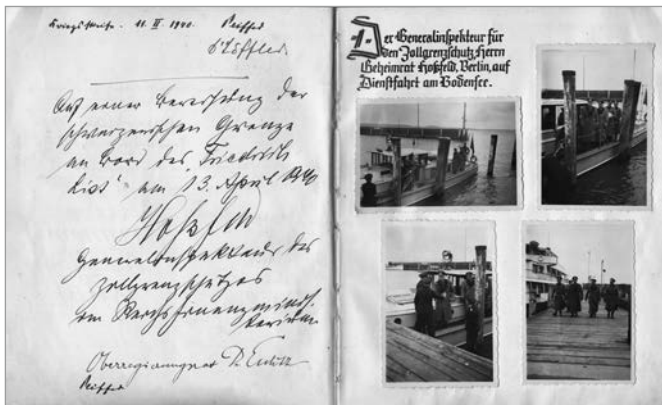 11. II. 1940.
Auf einer Bereisung der
schweizerischen Grenze
an Bord des "Friedrich
List" am 13. April 1940
Hoßfeld
Generalinspekteur des
Zollgrenzschutzes
im
Oberregierungsrat Dr.
Der Generalinspekteur für
den Zollgrenzschutz Herrn
Geheimrat Hoßfeld, Berlin, auf
Dienstfahrt am Bodensee.